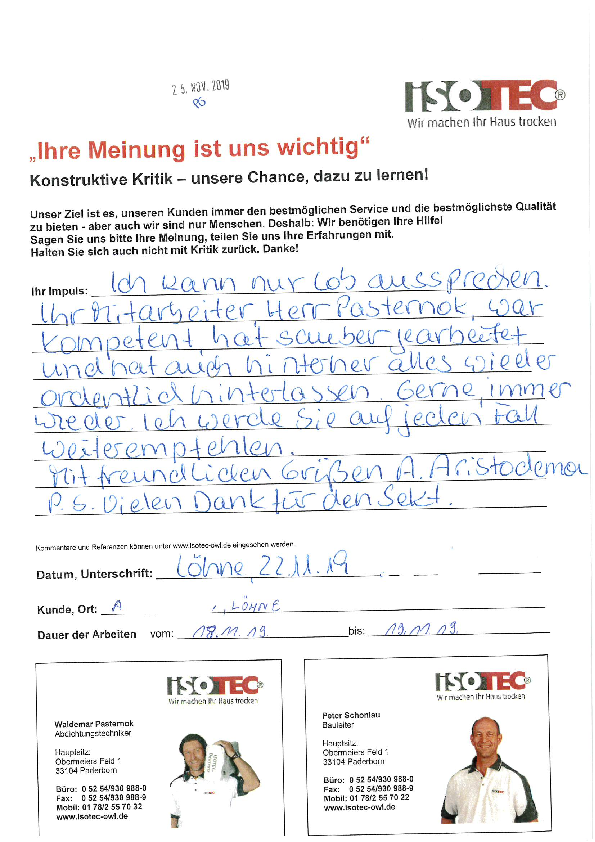 25. NOV. 2019
ISOTEC®
Wir machen Ihr Haus trocken
„Ihre Meinung ist uns wichtig“
Konstruktive Kritik – unsere Chance, dazu zu lernen!
Unser Ziel ist es, unseren Kunden immer den bestmöglichen Service und die bestmöglichste Qualität
zu bieten - aber auch wir sind nur Menschen. Deshalb: Wir benötigen Ihre Hilfe!
Sagen Sie uns bitte Ihre Meinung, teilen Sie uns Ihre Erfahrungen mit.
Halten Sie sich auch nicht mit Kritik zurück. Danke!
Ihr Impuls: Ich kann nur Lob aussprechen.
Ihr Mitarbeiter, Herr Pasternok, war
kompetent, hat sauber gearbeitet
und hat auch hinterher alles wieder
ordentlich hinterlassen. Gerne, immer
wieder. Ich werde Sie auf jeden Fall
weiterempfehlen.
Mit freundlichen Grüßen A. Aristodemou
P.S. Vielen Dank für den Sekt.
Kommentare und Referenzen können unter www.isotec-owl.de eingesehen werden.
Datum, Unterschrift: Löhne, 22.11.19
Kunde, Ort: A , LÖHNE
Dauer der Arbeiten vom: 18.11.19 bis: 19.11.19.
ISOTEC®
Wir machen Ihr Haus trocken
Waldemar Pasternok
Abdichtungstechniker
Hauptsitz:
Obermeiers Feld 1
33104 Paderborn
Büro: 0 52 54/930 988-0
Fax: 0 52 54/930 988-9
Mobil: 01 78/2 55 70 32
www.isotec-owl.de
ISOTEC®
Wir machen Ihr Haus trocken
Peter Schonlau
Bauleiter
Hauptsitz:
Obermeiers Feld 1
33104 Paderborn
Büro: 0 52 54/930 988-0
Fax: 0 52 54/930 988-9
Mobil: 01 78/2 55 70 22
www.isotec-owl.de